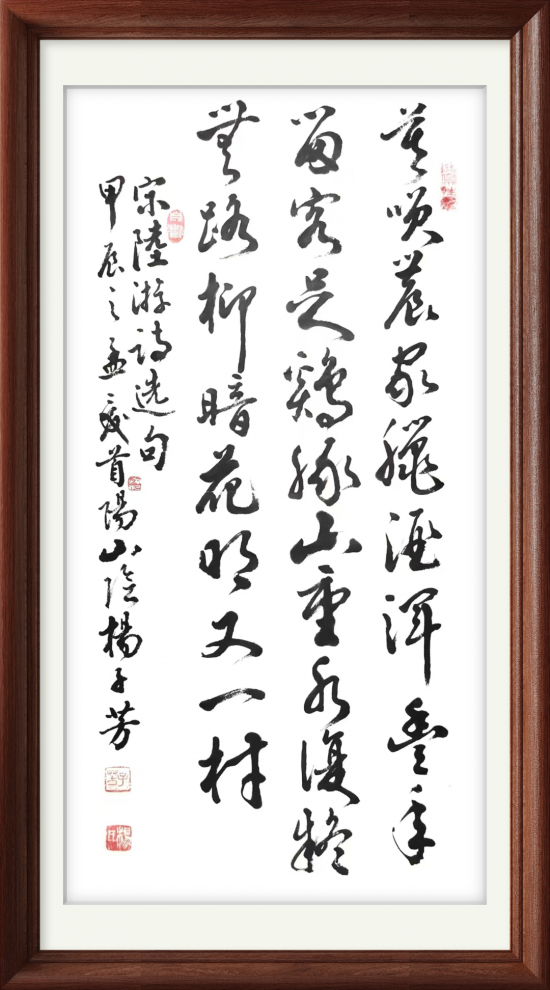 莫笑農家臘酒渾豐年
留客足鷄豚山重水復疑
無路柳暗花明又一村
宋陸游詩選句
甲辰之孟夏首陽山陰楊子芳